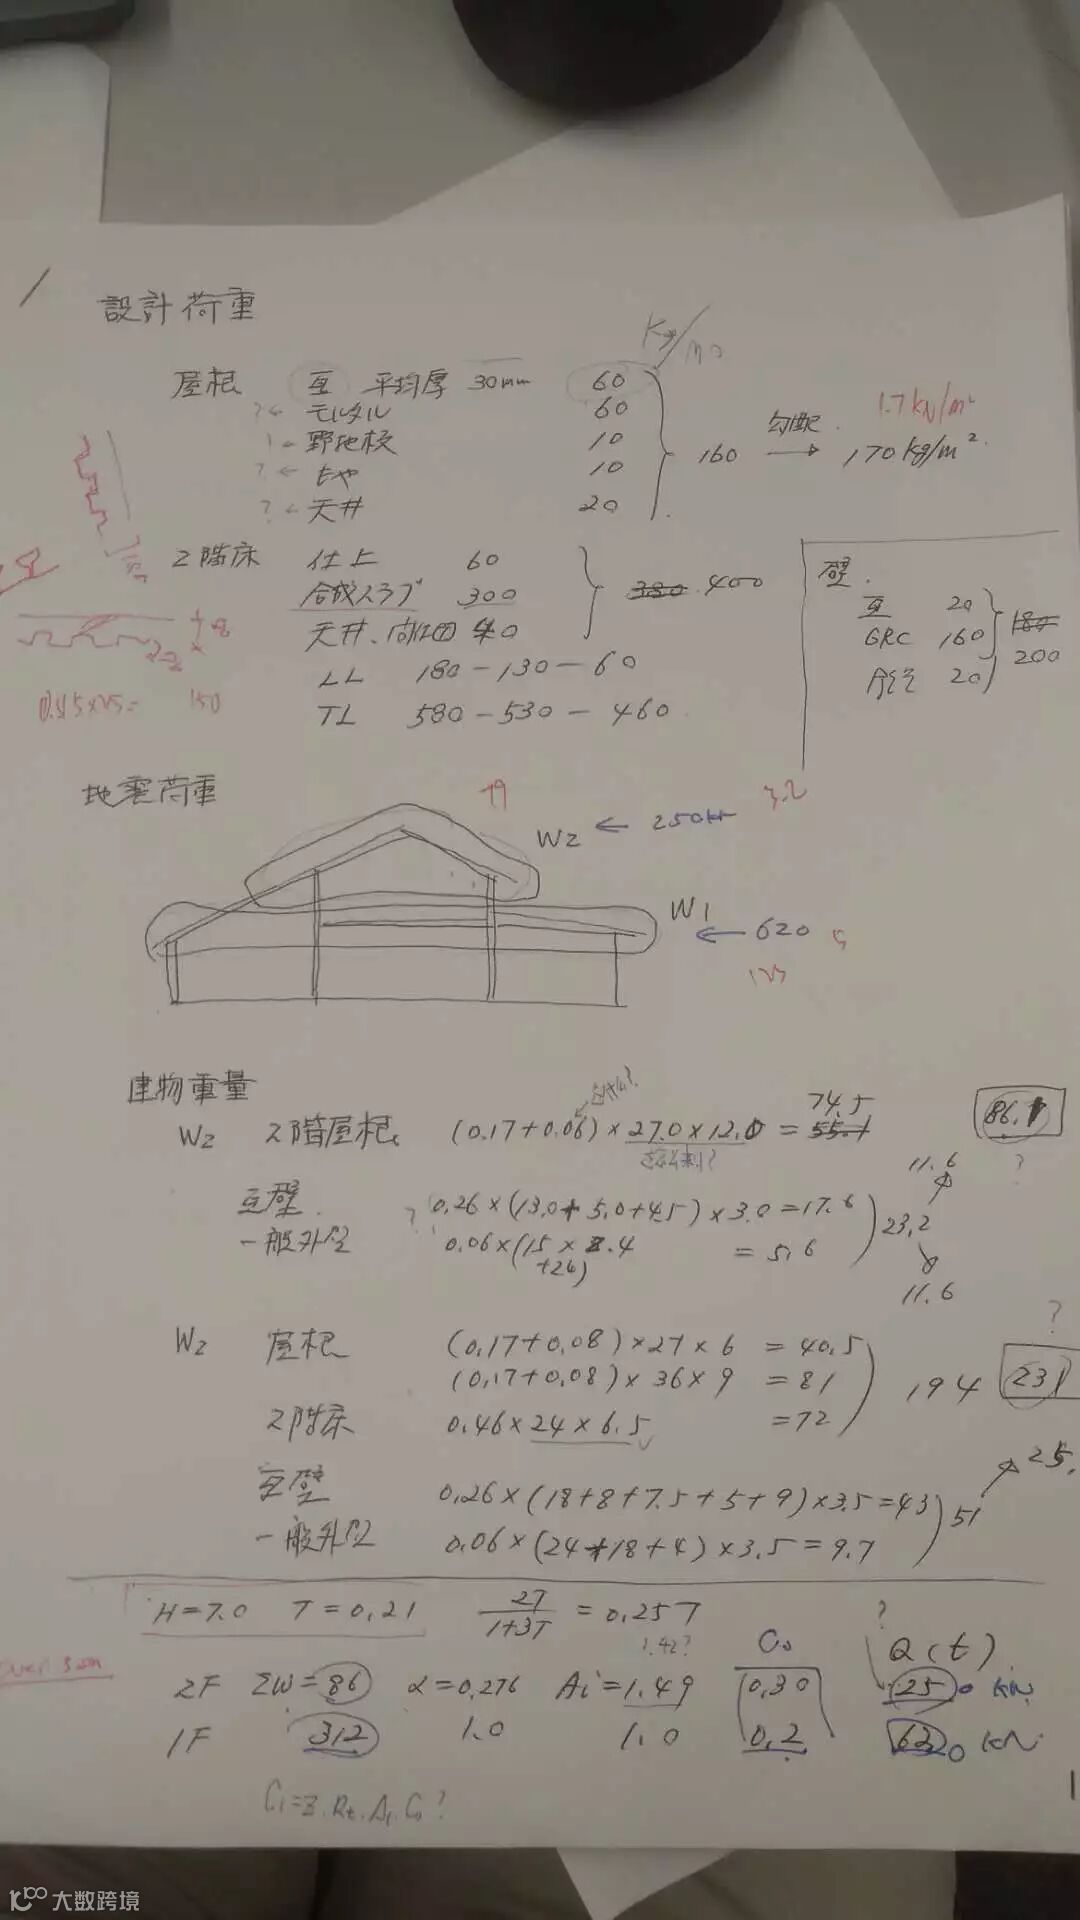 設計荷重
Kg/m2
屋根 瓦 平均厚 30mm 60
?← モルタル 60
野地板 10
?← もや 10
?← 天井 20
160 勾配 → 170kg/m²
1.7kN/m²
2階床 仕上 60
合成スラブ 300
天井、間仕切 40
380 400
LL 180-130-60
TL 580-530-460
壁
瓦 20
GRC 160
胴縁 20
180
200
150
地震荷重
W2 ← 250kN
3.2
W1 ← 620
建物重量
W2 2階屋根 (0.17+0.06)×27.0×12.0 = 55.1
74.5
86.1
瓦壁 ? 0.26×(13.0+5.0+4.5)×3.0=17.6
一般外壁 0.06×(15×2.4 = 5.6
+26)
23.2
11.6
11.6
?
W2 屋根 (0.17+0.08)×27×6 = 40.5
(0.17+0.08)×36×9 = 81
2階床 0.46×24×6.5 = 72
194
231
?
瓦壁 0.26×(18+8+7.5+5+9)×3.5=43
一般外壁 0.06×(24+18+4)×3.5=9.7
51
25.
H=7.0 T=0.21 2T/1+3T = 0.257
1.42?
C₀ Q(t)
?
2F ΣW=86 α=0.276 Ai=1.49 0.30 250 kN
1F 312 1.0 1.0 0.2 620 kN
Ci=Z.Rt.Ai.C₀?
1
大数跨境